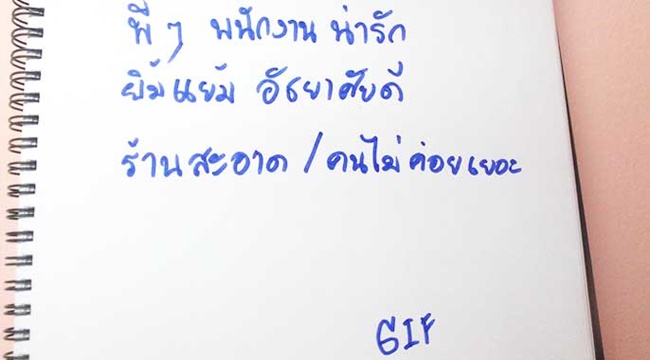 พี่ๆ พนักงาน น่ารัก
ยิ้มแย้ม อัธยาศัยดี
ร้านสะอาด / คนไม่ค่อยเยอะ
GIF